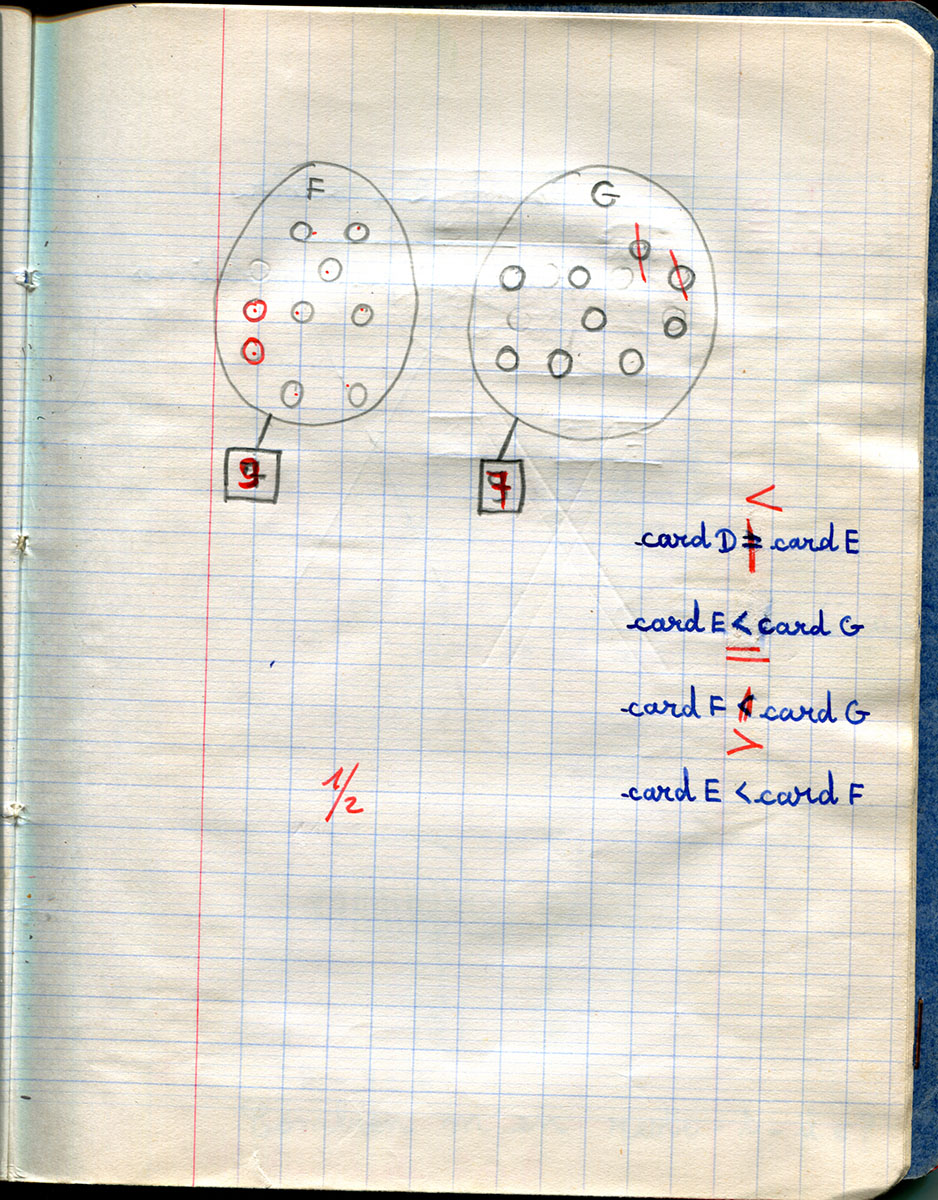 F G
9 7
<
card D = card E
card E < card G
=
card F < card G
>
1/2
card E < card F